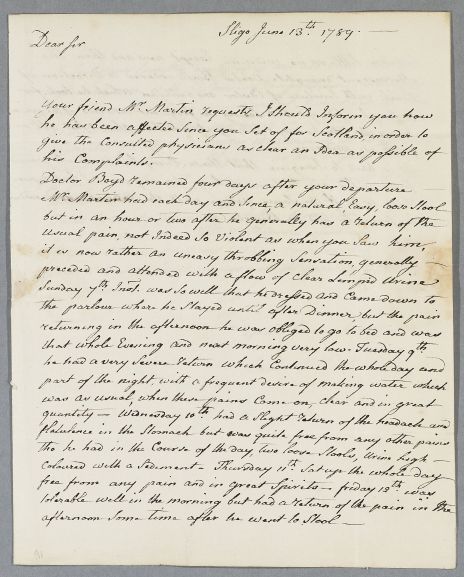 Sligo June 13th. 1789. —
Dear Sir
Your friend Mr. Martin requests I should Inform you how
he has been affected Since you Set of for Scotland in order to
give the Consulted physicians as clear an Idea as possible of
his Complaints.
Doctor Boyd remained four days after your departure
Mr. Martin had each day and Since, a natural, Easy, loose Stool
but in an hour or two after he generally has a return of the
usual pain, not Indeed So Violent as when you Saw him,
it is now rather an uneasy throbbing Sensation, generally
preceded and attended with a flow of Clear Limped Urine
Sunday 7th. Inst. was So well that he dressed and Came down to
the parlour where he Stayed until after Dinner but the pain
returning in the afternoon he was obliged to go to bed and was
that whole Evening and next morning very low. Tuesday 9th.
he had a very Severe return which Continued the whole day and
part of the night, with a frequent desire of making water which
was as usual, when these pains Come on, clear and in great
quantity — Wednesday 10th had a Slight return of the headach and
flatulence in the Stomach but was quite free from any other pains
tho he had in the Course of the day two loose Stools, Urine high
Coloured with a Sediment — Thursday 11th Sat up the whole day
free from any pain and in great Spirits — friday 12th was
tolerable well in the morning but had a return of the pain in the
afternoon Some time after he went to Stool —